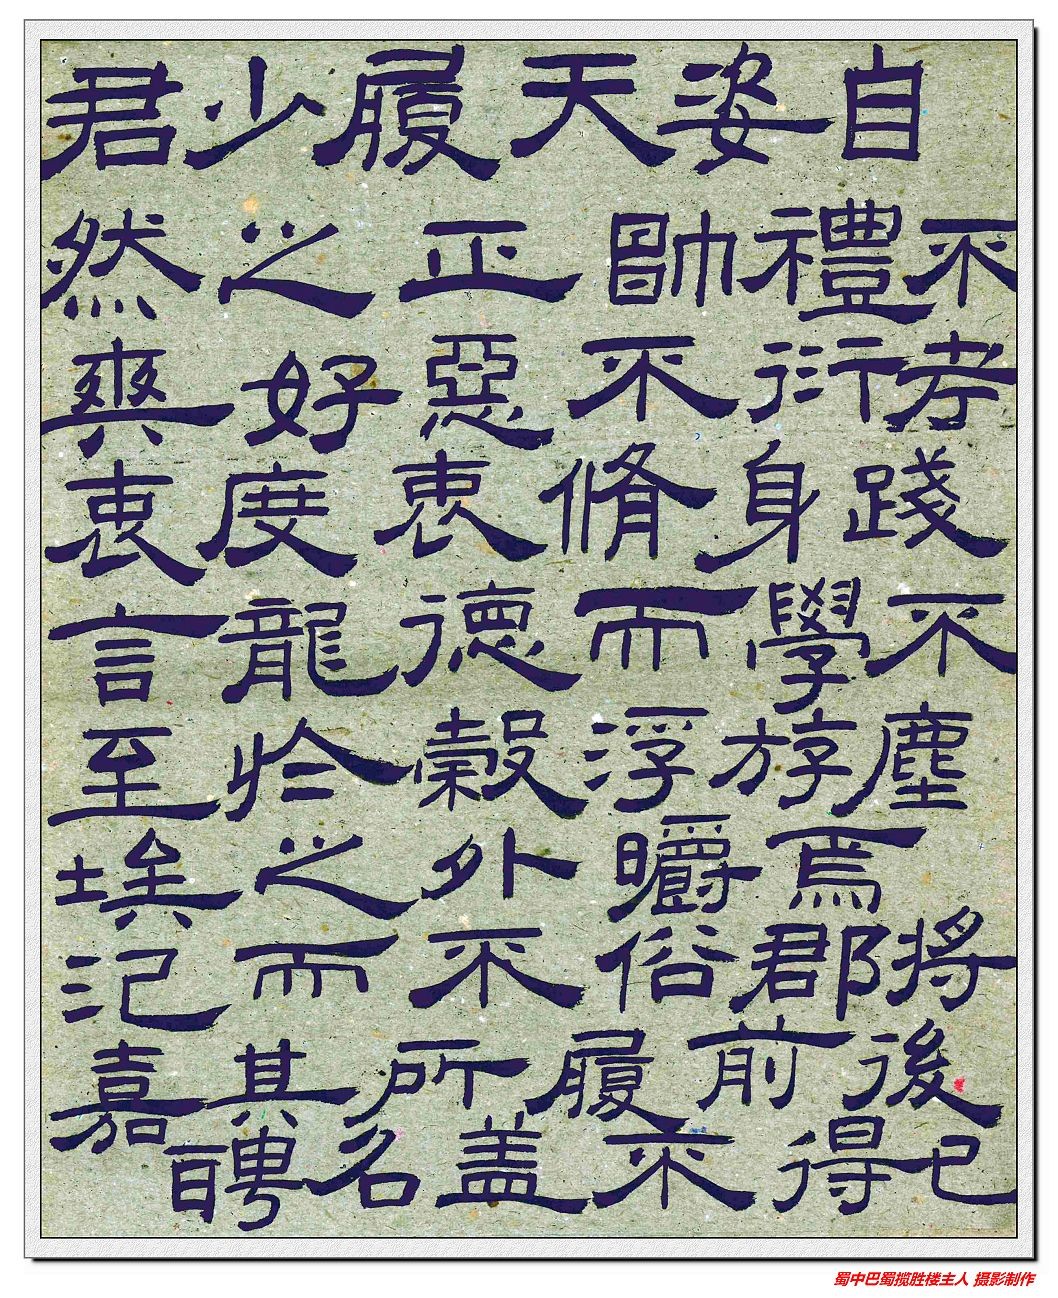 君少履天姿自
然之正帥禮不
爽好惡不衍考
衷度衷脩身踐
言龍德而學不
至於穀浮游塵
埃之外皭焉
氾而不俗郡將
嘉其所履前後
聘名盖不得已
蜀中巴蜀揽胜楼主人 摄影制作